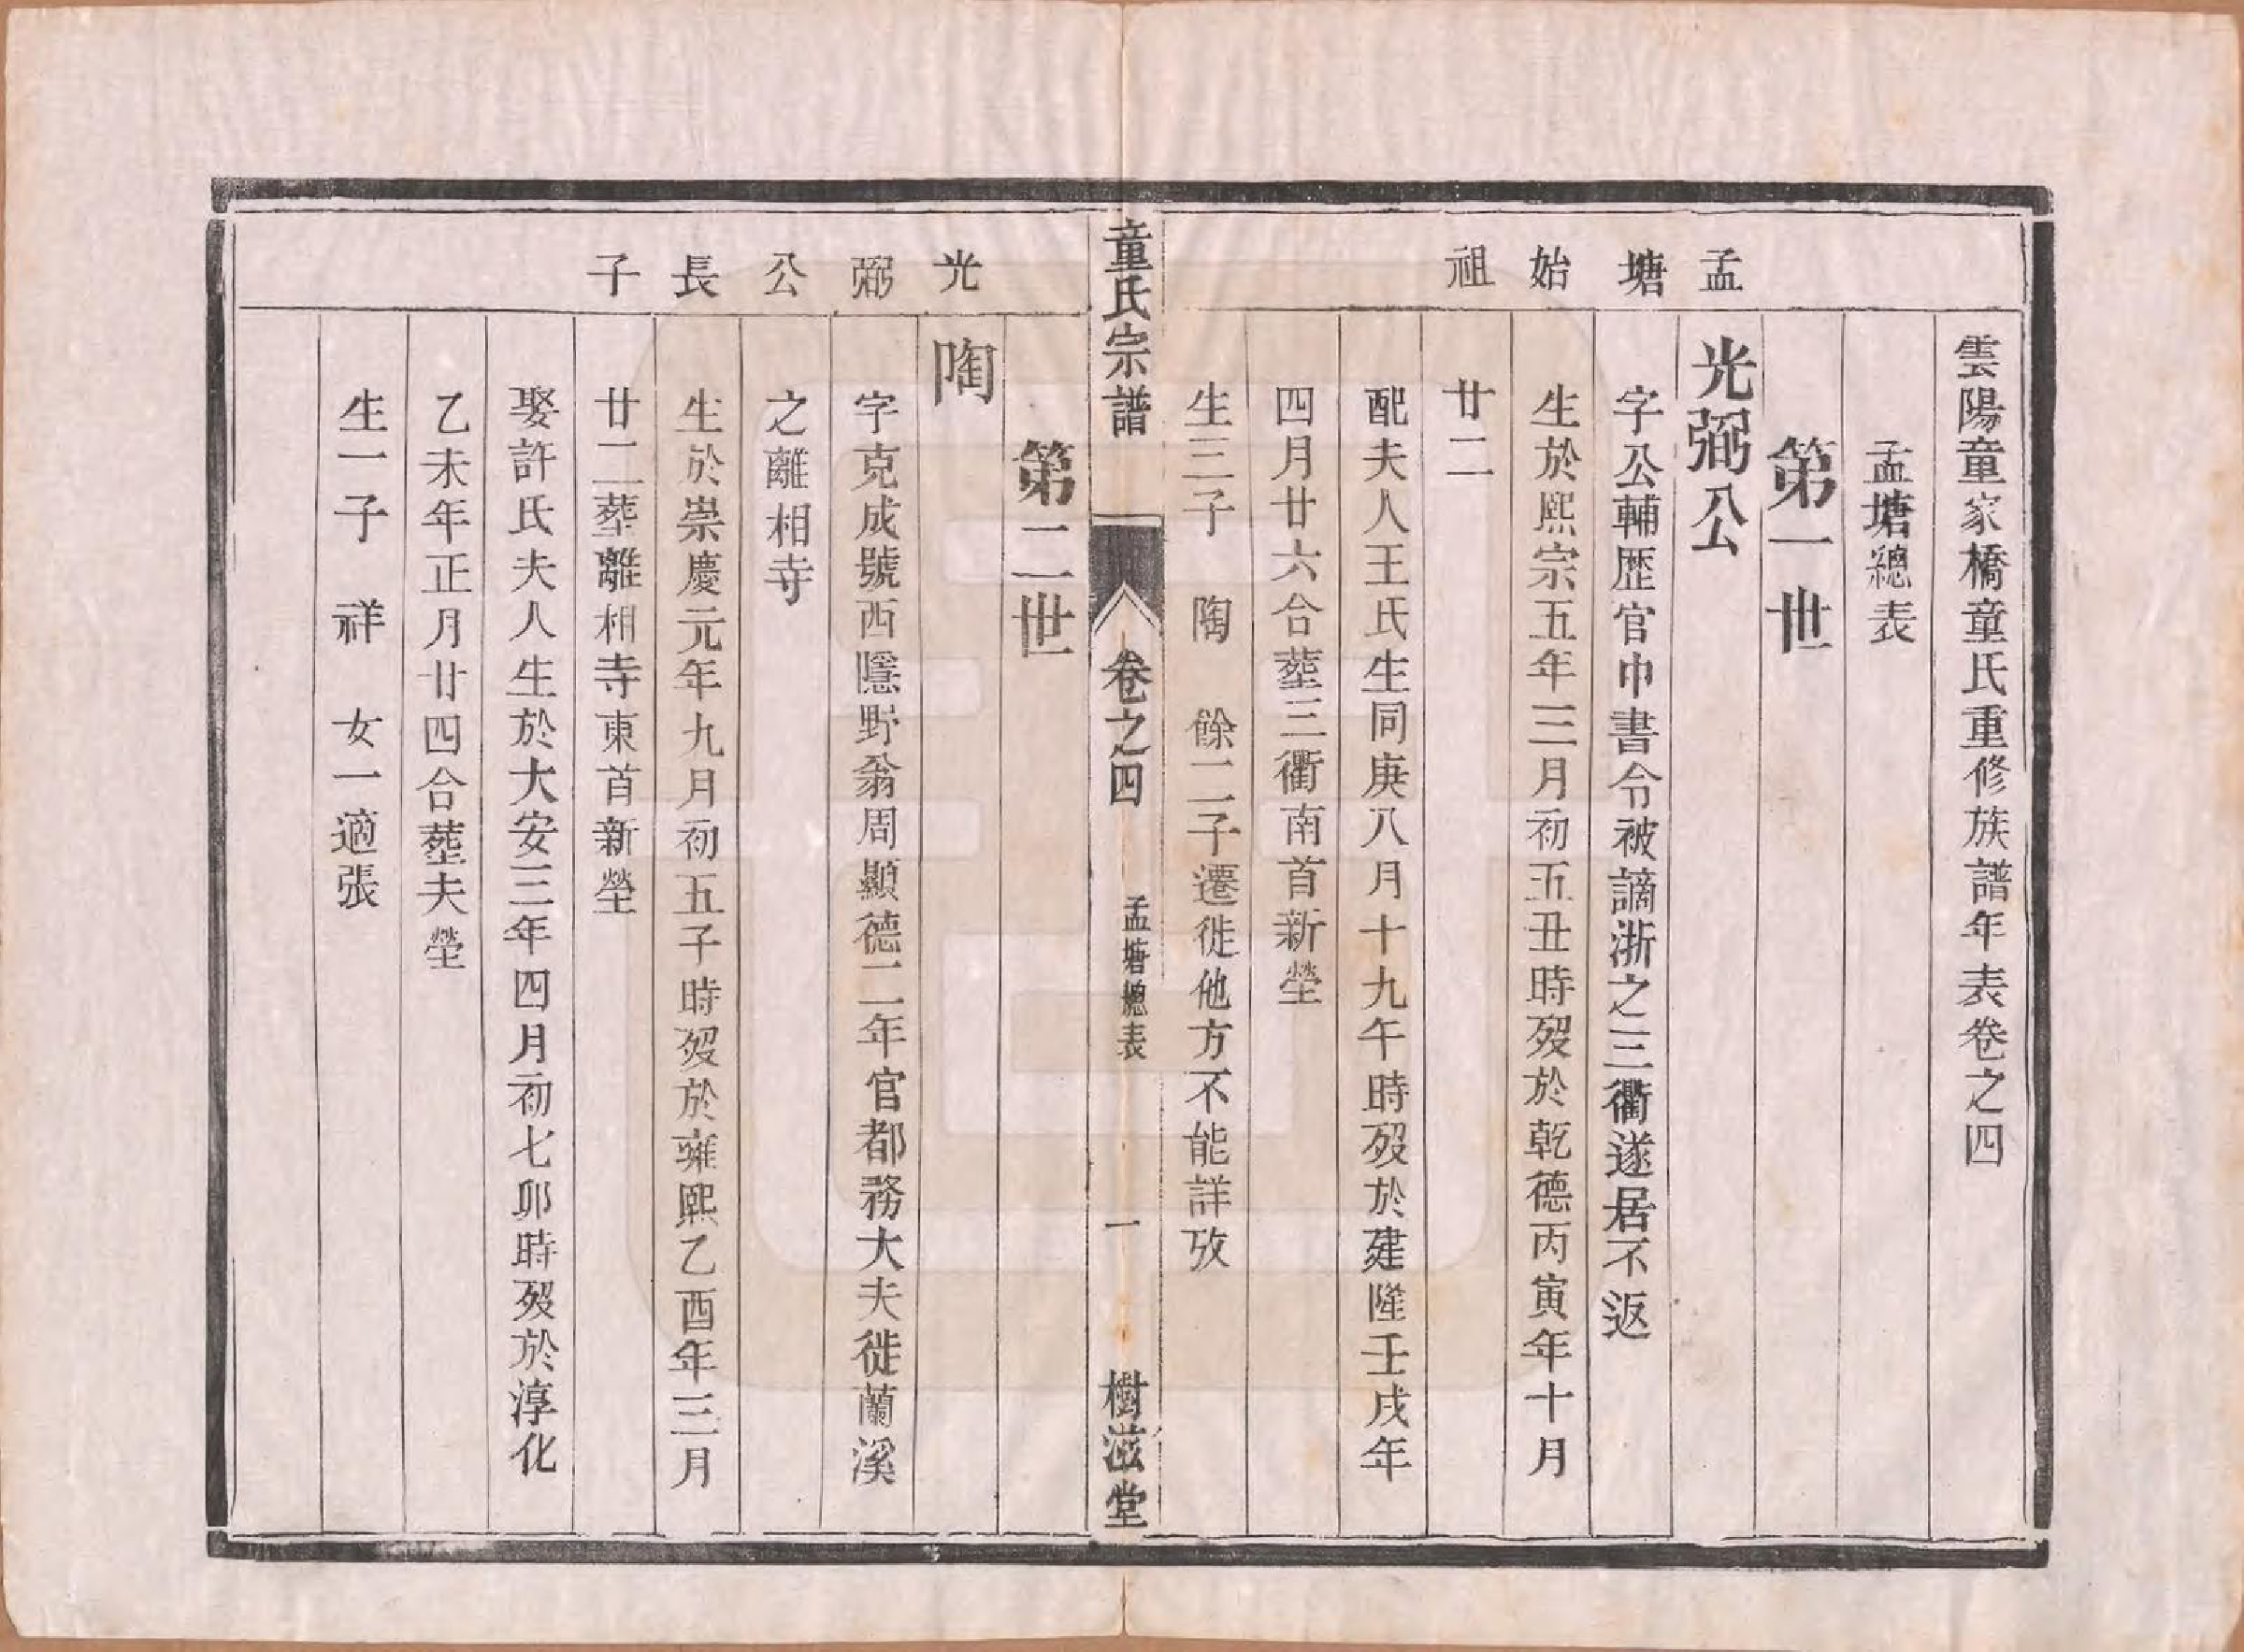 雲陽童家橋童氏重修族譜年表卷之四
孟塘總表
第一世
孟塘始祖
光弼公
字公輔歷官中書令被謫浙之三衢遂居不返
生於熙宗五年三月初五丑時歿於乾德丙寅年十月
廿二
配夫人王氏生同庚八月十九午時歿於建隆壬戌年
四月廿六合塟三衢南首新塋
生三子　陶　餘二子遷徙他方不能詳攷
童氏宗譜　卷之四　孟塘總表　一　樹滋堂
第二世
光弼公長子
陶
字克成號西隱野翁周顯德二年官都務大夫徙蘭溪
之離相寺
生於崇慶元年九月初五子時歿於雍熙乙酉年三月
廿二塟離相寺東首新塋
娶許氏夫人生於大安三年四月初七卯時歿於淳化
乙未年正月廿四合塟夫塋
生一子　祥　女一適張